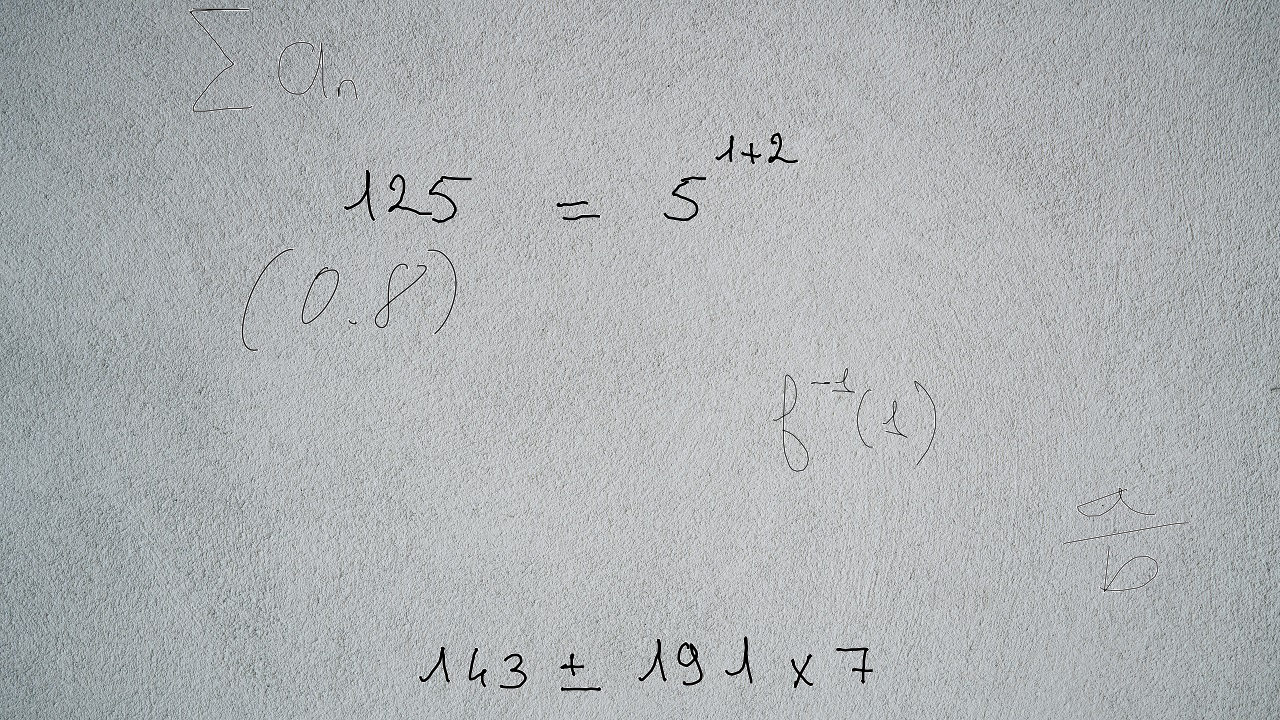 ∑ aₙ
125 = 5^{1+2}
(0.8)
f⁻¹(1)
a/b
143 ± 191 x 7